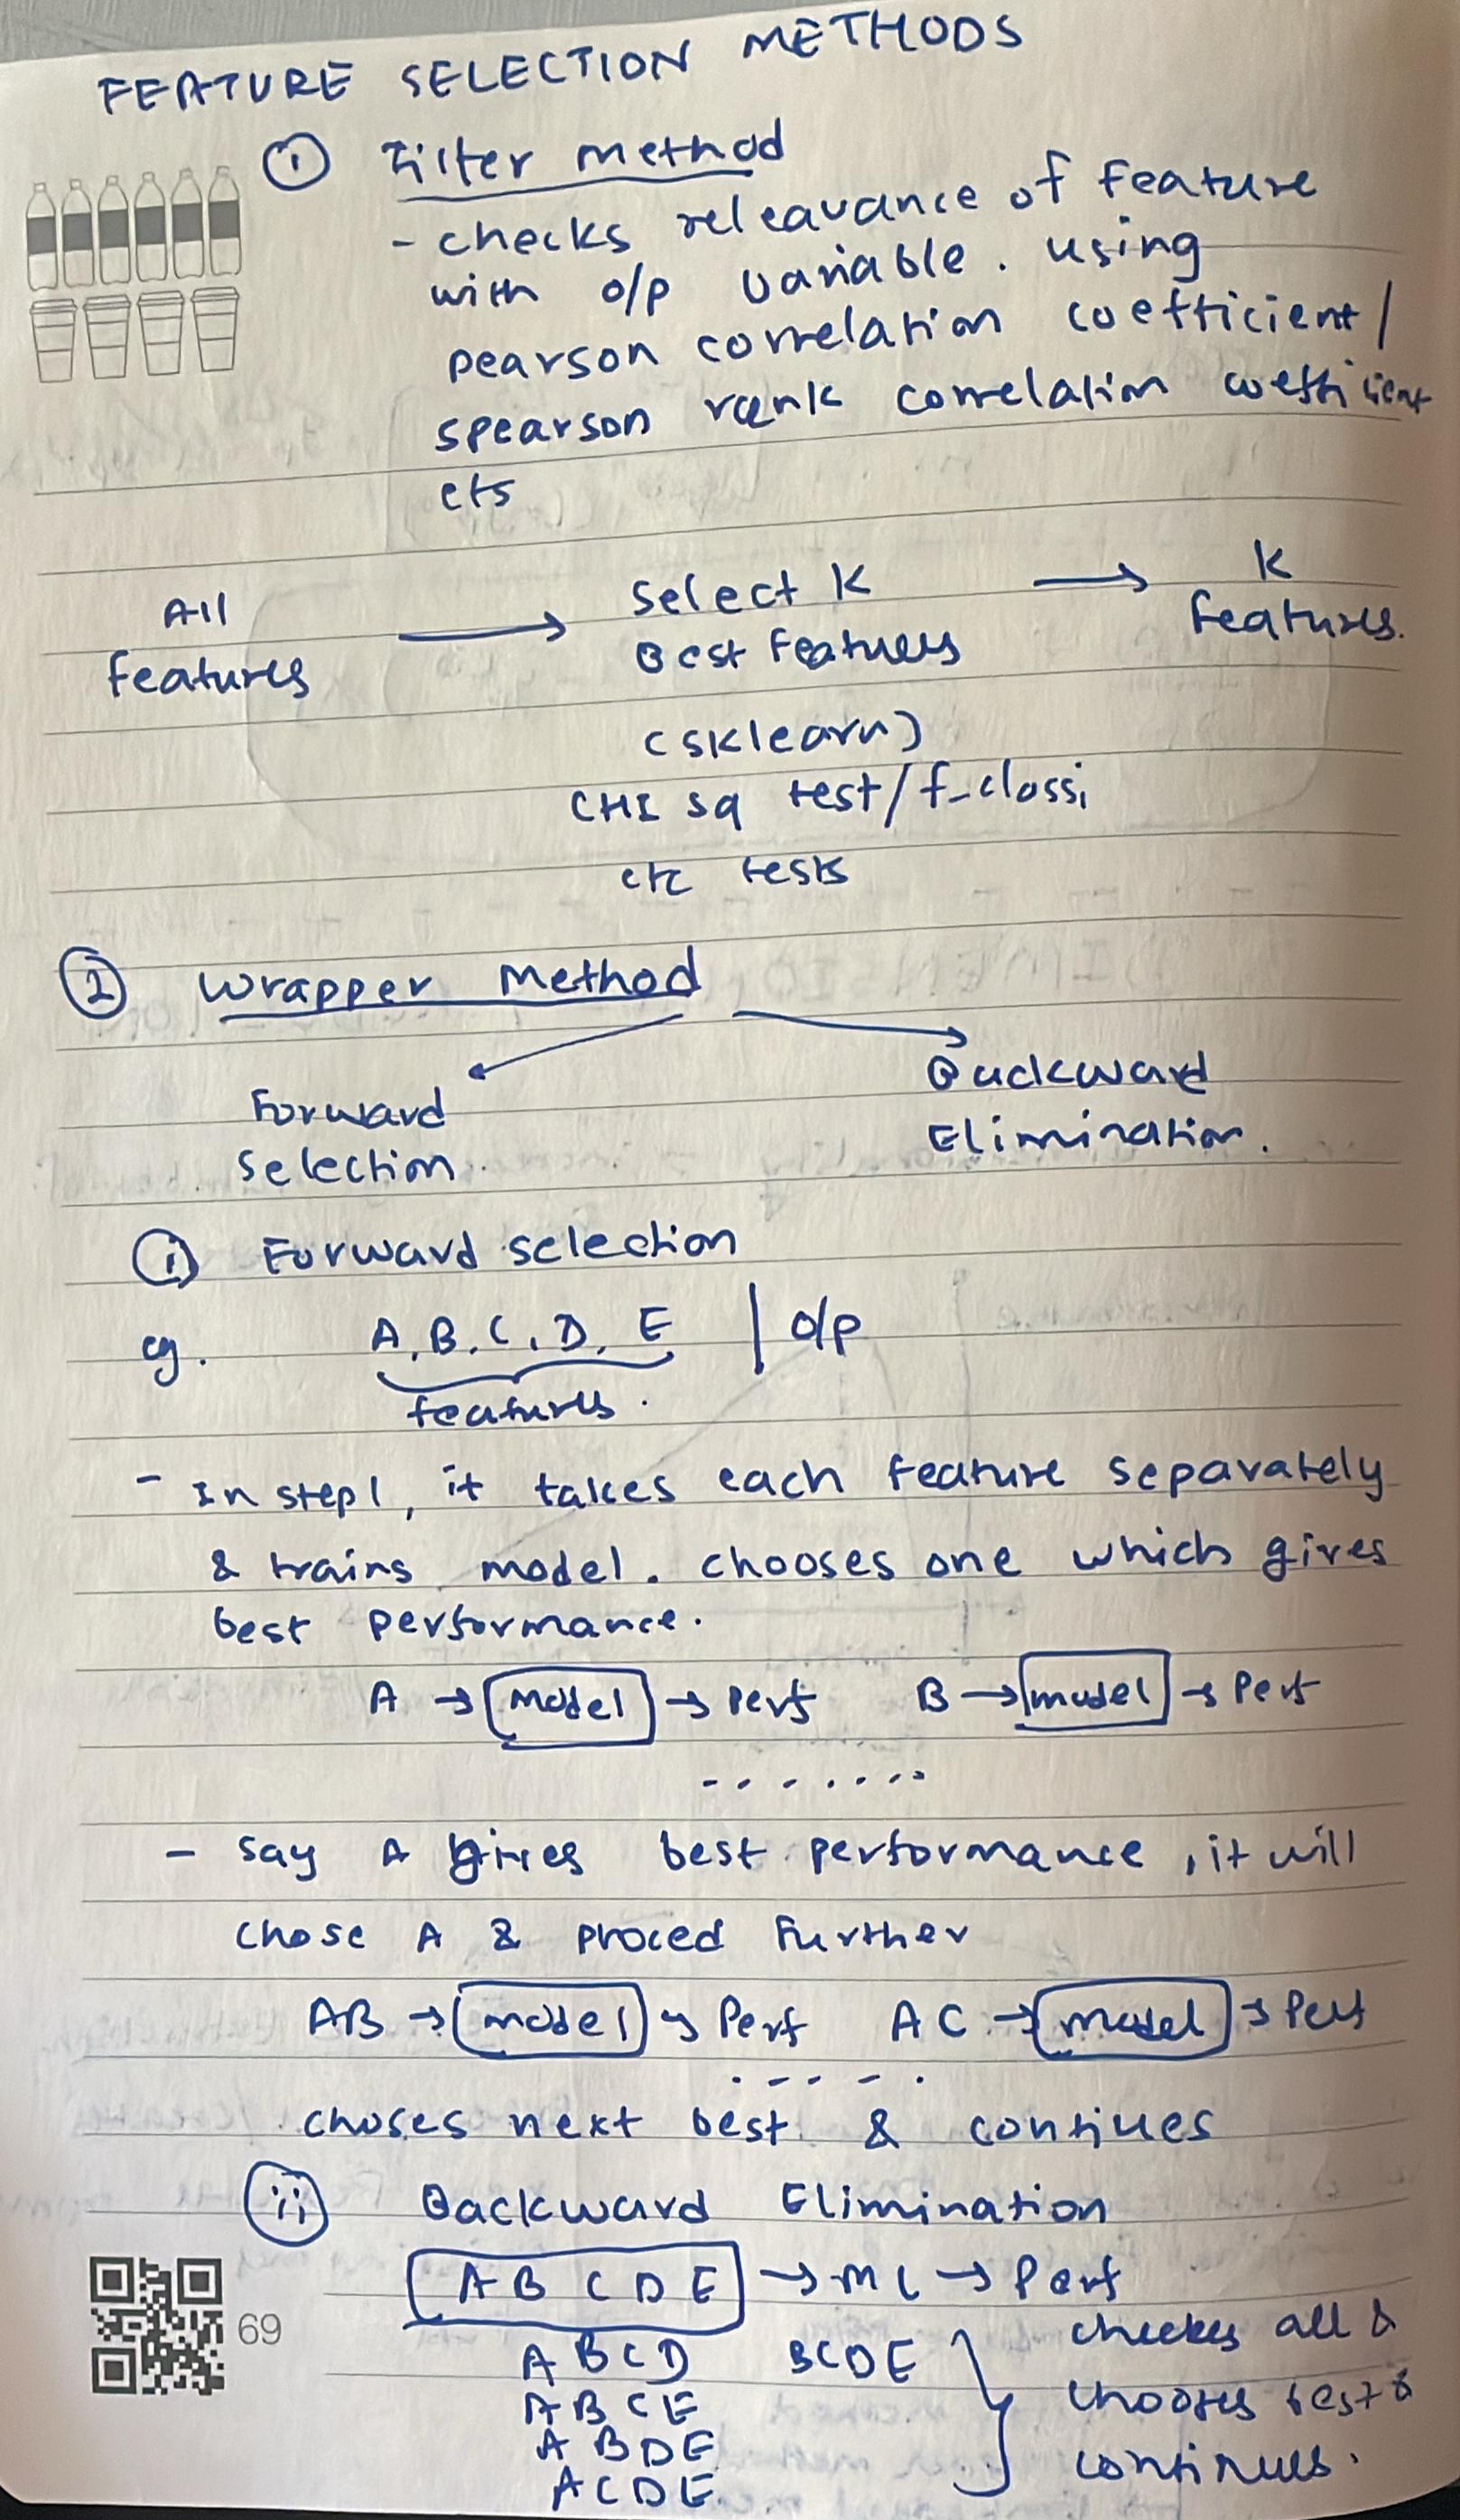 FEATURE SELECTION METHODS
① Filter method
- checks releavance of feature
with o/p variable. using
pearson correlation coefficient/
spearson rank correlation coefficient
ets
All
features
→
Select K
Best Features
→
K
features.
(sklearn)
CHI sq test/f_classi
etc tests
② Wrapper Method
Forward
selection
Backward
Elimination.
① Forward selection
eg. A, B, C, D, E | o/p
features.
- In step1, it takes each feature separately
& trains model. chooses one which gives
best performance.
A → model → Perf B → model → Perf
.......
- say A gives best performance, it will
chose A & proced further
AB → model → Perf AC → model → Perf
......
choses next best & continues
ii Backward Elimination
A B C D E → ML → Perf
A B C D BCDE
A B C E
A B D E
A C D E
checkes all &
chooses best &
continues.
69